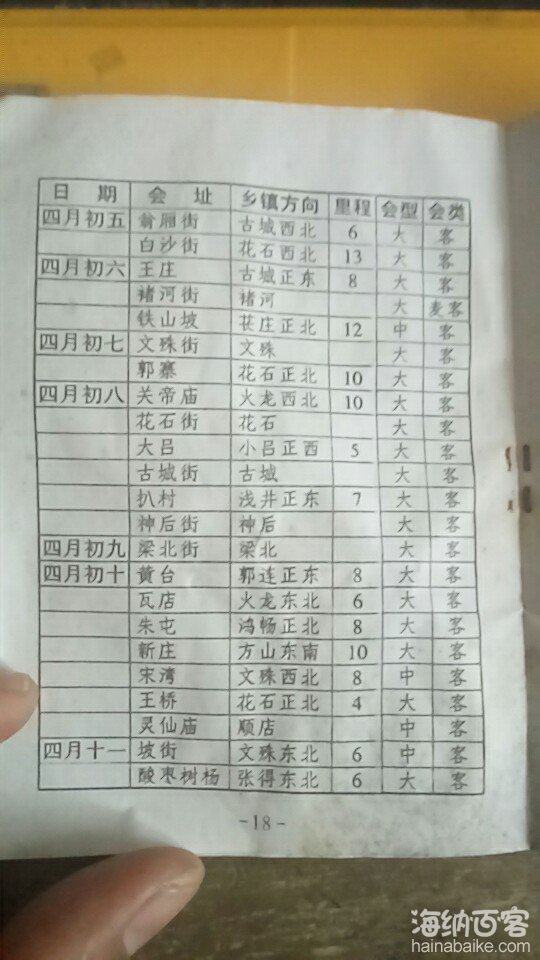 日 期 会 址 乡镇方向 里程 会型 会类
四月初五 翁厢街 古城西北 6 大 客
白沙街 花石西北 13 大 客
四月初六 王庄 古城正东 8 大 客
褚河街 褚河 大 麦客
铁山坡 苌庄正北 12 中 客
四月初七 文殊街 文殊 大 客
郭寨 花石正北 10 大 客
四月初八 关帝庙 火龙西北 10 大 客
花石街 花石 大 客
大吕 小吕正西 5 大 客
古城街 古城 大 客
扒村 浅井正东 7 大 客
神后街 神后 大 客
四月初九 梁北街 梁北 大 客
四月初十 黄台 郭连正东 8 大 客
瓦店 火龙东北 6 大 客
朱屯 鸿畅正北 8 大 客
新庄 方山东南 10 大 客
宋湾 文殊西北 8 中 客
王桥 花石正北 4 大 客
灵仙庙 顺店 中 客
四月十一 坡街 文殊东北 6 中 客
酸枣树杨 张得东北 6 大 客
-18-
海纳百客
hainabaike.com